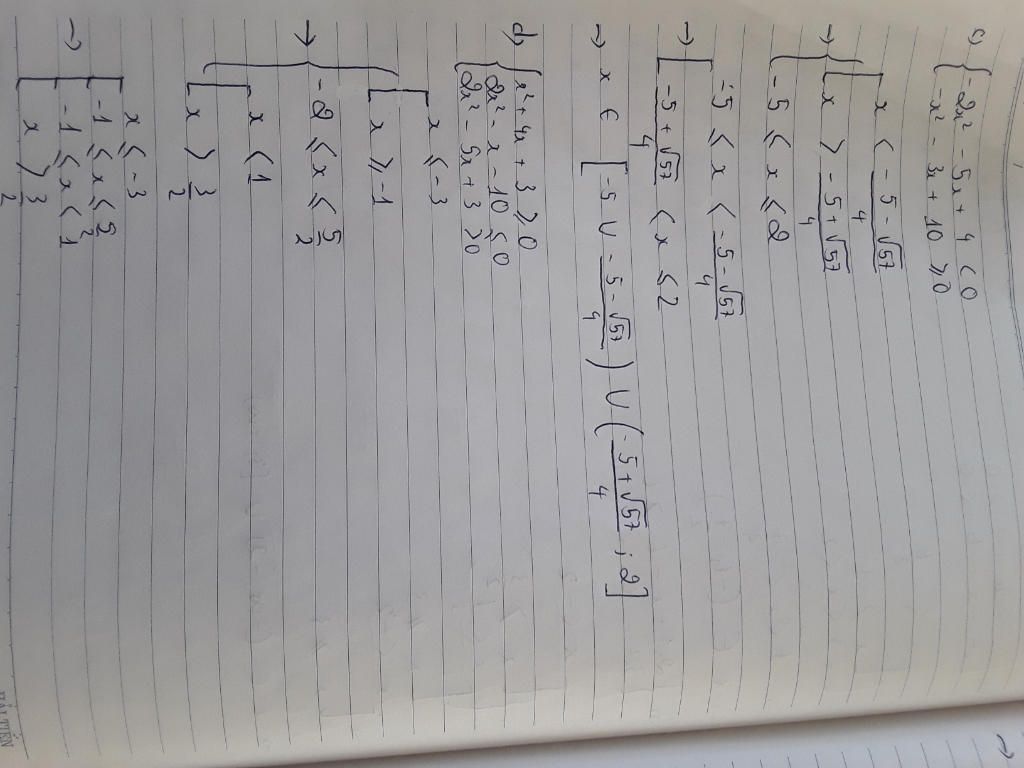 c) { -2x² - 5x + 4 < 0
-x² - 3x + 10 ≥ 0
→ { [ x < (-5 - √57)/4
x > (-5 + √57)/4
-5 ≤ x ≤ 2
→ [ -5 ≤ x < (-5 - √57)/4
(-5 + √57)/4 < x ≤ 2
→ x ∈ [-5 ∪ (-5 - √57)/4) ∪ ((-5 + √57)/4 ; 2]
d) { x² + 4x + 3 ≥ 0
2x² - x - 10 ≤ 0
2x² - 5x + 3 ≥ 0
→ { [ x ≤ -3
x ≥ -1
-2 ≤ x ≤ 5/2
[ x < 1
x > 3/2
→ [ x ≤ -3
-1 ≤ x ≤ 5/2
-1 ≤ x < 1
x > 3/2